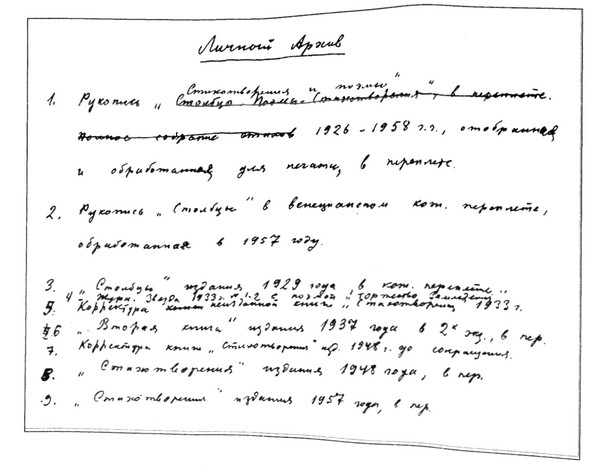 Личный Архив
Стихотворения и поэмы"
1. Рукопись „Столбцы Поэмы Стихотворения", в переплете.
Полное собрание стихов 1926 - 1958 г.г., отобранная
и обработанная для печати, в переплете.
2. Рукопись „Столбцы" в венецианском кож. переплете,
обработанная в 1957 году.
3. „Столбцы" издания 1929 года в кож. переплете
4 Журн. Звезда 1933 г. № 1-2 с поэмой „Торжество Земледелия"
5. Корректура неизданной книги „Стихотворения 1933 г.
6 „Вторая книга" издания 1937 года в 2х экз., в пер.
7. Корректура книги „Стихотворения" изд. 1948 г. до сокращения.
8. „Стихотворения" издания 1948 года, в пер.
9. „Стихотворения" издания 1957 года, в пер.